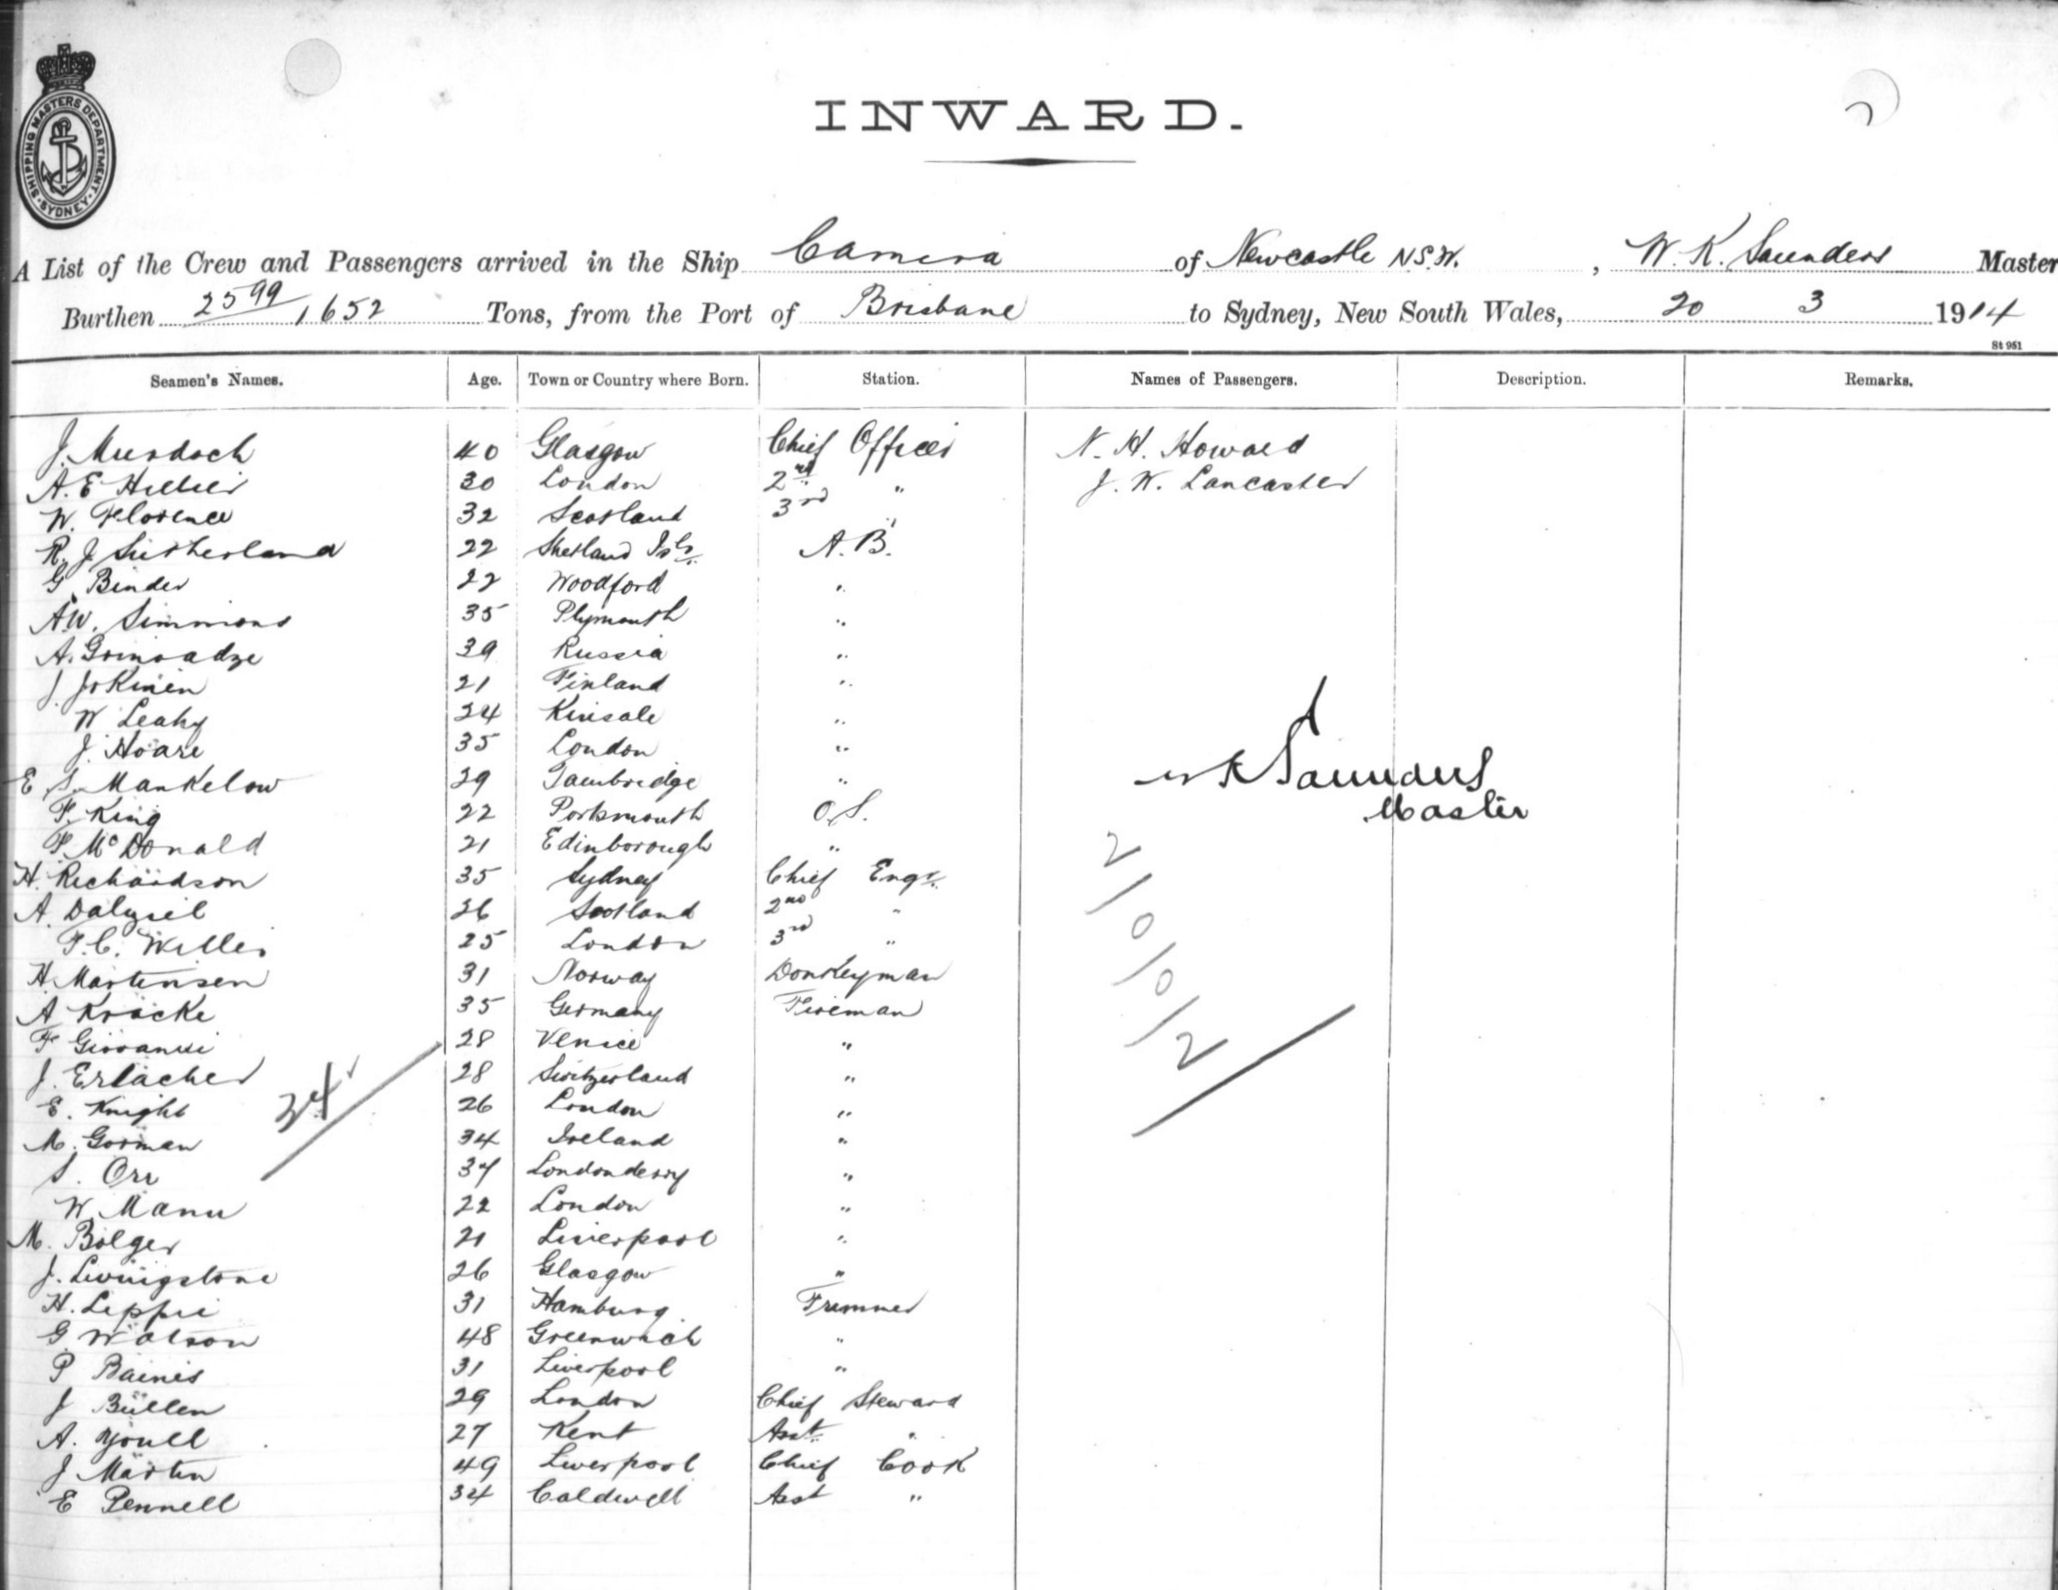 SHIPPING MASTERS DEPARTMENT · SYDNEY ·
INWARD.
A List of the Crew and Passengers arrived in the Ship Camira of Newcastle N.S.W. , W. K. Saunders Master
Burthen 2599 1652 Tons, from the Port of Brisbane to Sydney, New South Wales, 20 3 1914
St 951
Seamen's Names. Age. Town or Country where Born. Station. Names of Passengers. Description. Remarks.
J. Murdoch 40 Glasgow Chief Officer N. H. Howard
A. E Hillier 30 London 2nd " J. W. Lancaster
W. Florence 32 Scotland 3rd "
R. J Sutherland 22 Shetland Isls. A. B.
G. Binder 22 Woodford "
A.W. Simmons 35 Plymouth "
A. Grinvadze 39 Russia "
J. Jokinen 21 Finland "
W Leahy 24 Kinsale "
J. Hoare 35 London "
E. S. Mankelow 29 "
F. King 22 Portsmouth O.S.
F. McDonald 21 Edinborough "
H. Richardson 35 Sydney Chief Engr.
A. Dalyzil 26 Scotland 2nd "
F. C. Willis 25 London 3rd "
H. Martensen 31 Norway Donkeyman
A Kracke 35 Germany Fireman
F Giovanni 28 Venice "
J. Erlacher 28 Switzerland "
E. Knight 26 London "
M. Gorman 34 Ireland "
S. Orr 37 Londonderry "
W. Mann 22 London "
M. Bolger 21 Liverpool "
J. Livingstone 26 Glasgow "
H. Leppi 31 Hamburg Trimmer
G. Watson 48 Greenwich "
P Baines 31 Liverpool "
J Bullen 29 London Chief Steward
A. Youll 27 Kent Asst. "
J Martin 49 Liverpool Chief Cook
E Pennell 34 Caldwell Asst "
W K Saunders
Master
34
2/0/0/2